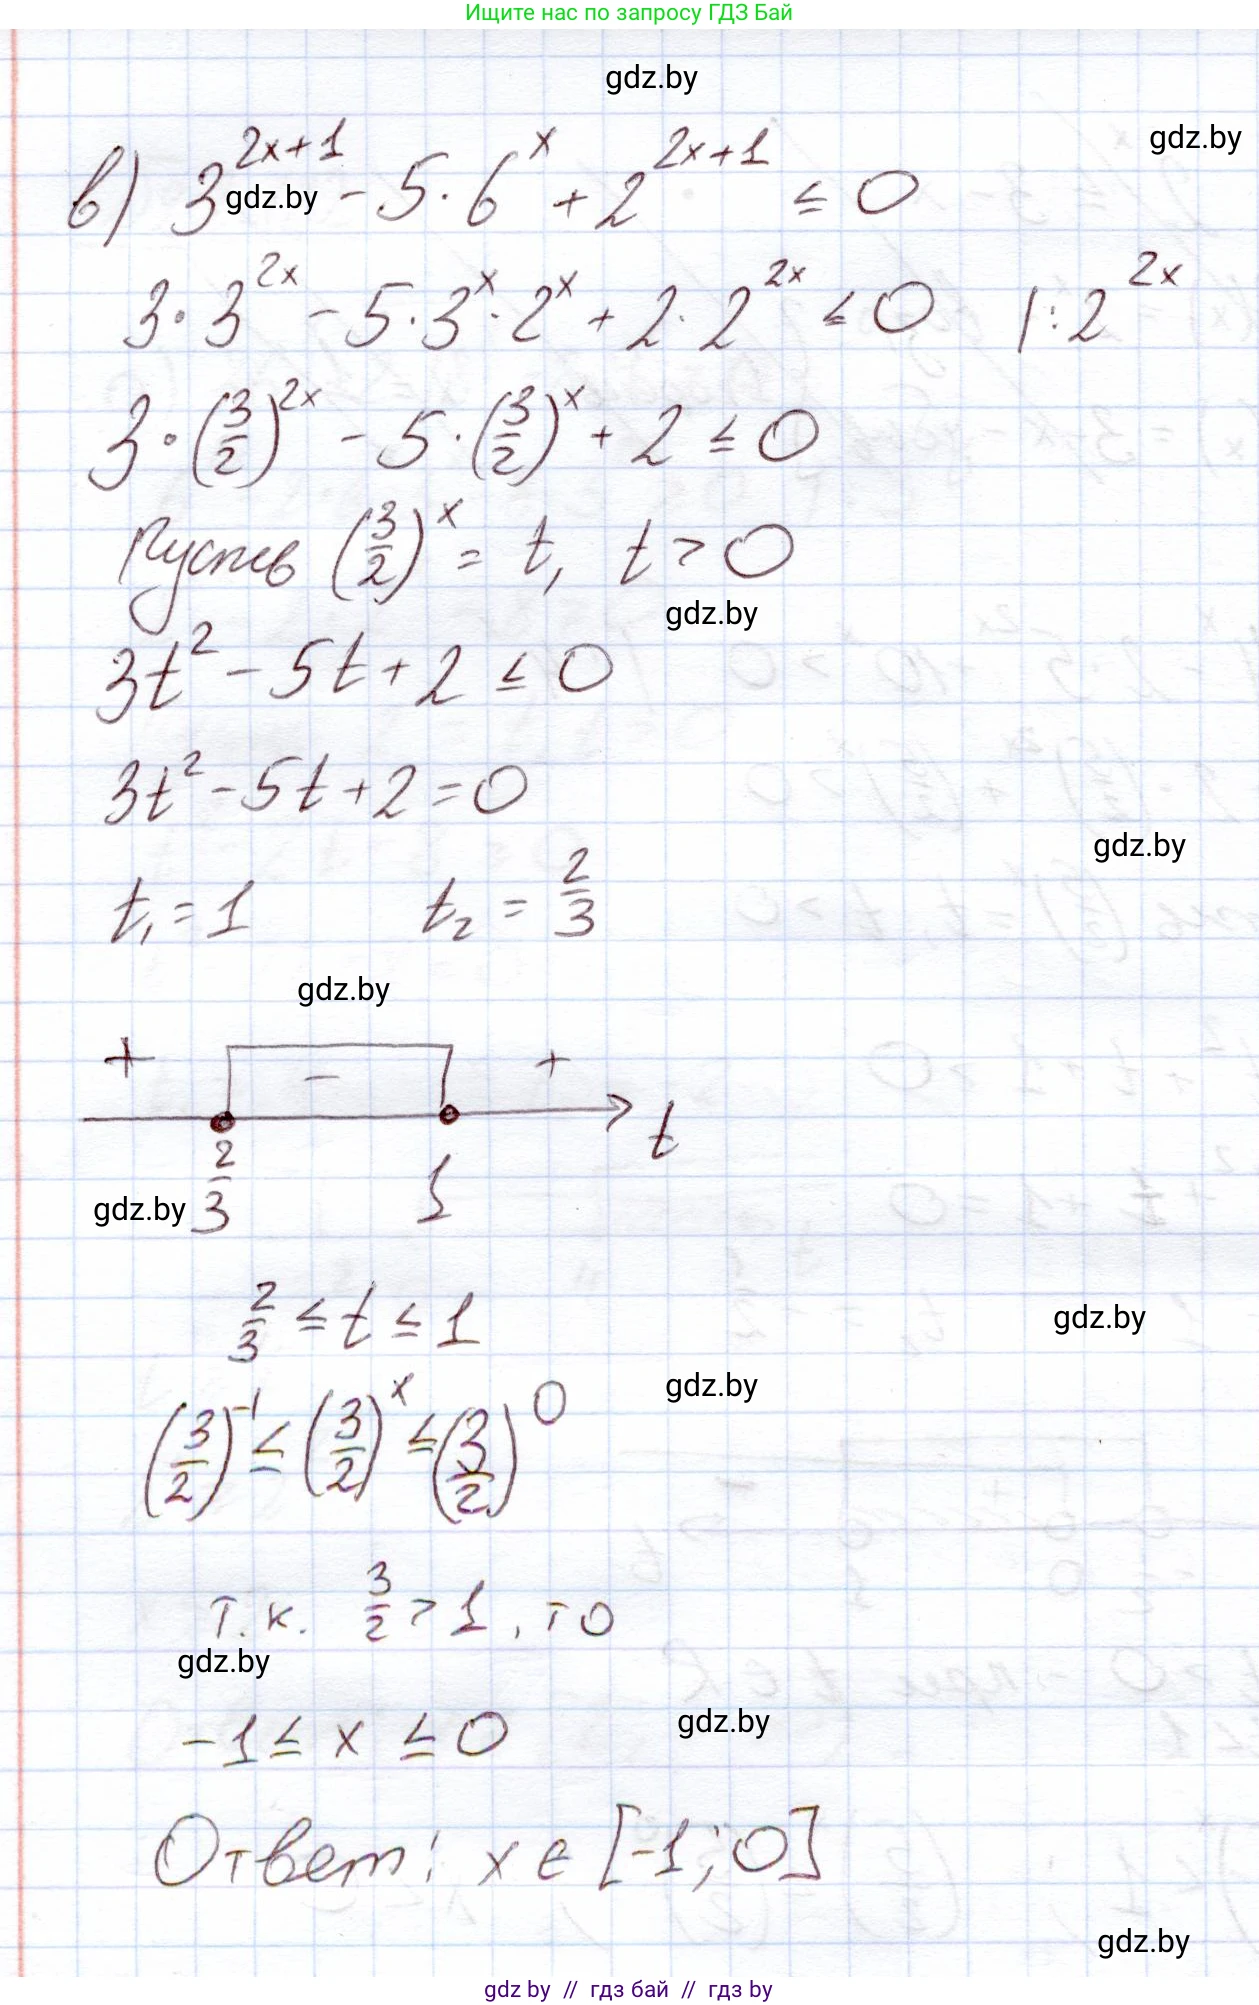 Ищите нас по запросу ГДЗ Бай
gdz.by
gdz.by
в) 3^(2x+1) - 5·6^x + 2^(2x+1) ≤ 0
gdz.by
3·3^(2x) - 5·3^x·2^x + 2·2^(2x) ≤ 0 |:2^(2x)
3·(3/2)^(2x) - 5·(3/2)^x + 2 ≤ 0
Пусть (3/2)^x = t, t > 0
gdz.by
3t² - 5t + 2 ≤ 0
3t² - 5t + 2 = 0
gdz.by
t₁ = 1 t₂ = 2/3
gdz.by
+ - +
t
2/3 1
gdz.by
2/3 ≤ t ≤ 1
gdz.by
gdz.by
(3/2)^(-1) ≤ (3/2)^x ≤ (3/2)^0
т.к. 3/2 > 1, то
gdz.by
-1 ≤ x ≤ 0
gdz.by
Ответ: x ∈ [-1; 0]
gdz.by
gdz by // гдз бай // гдз by